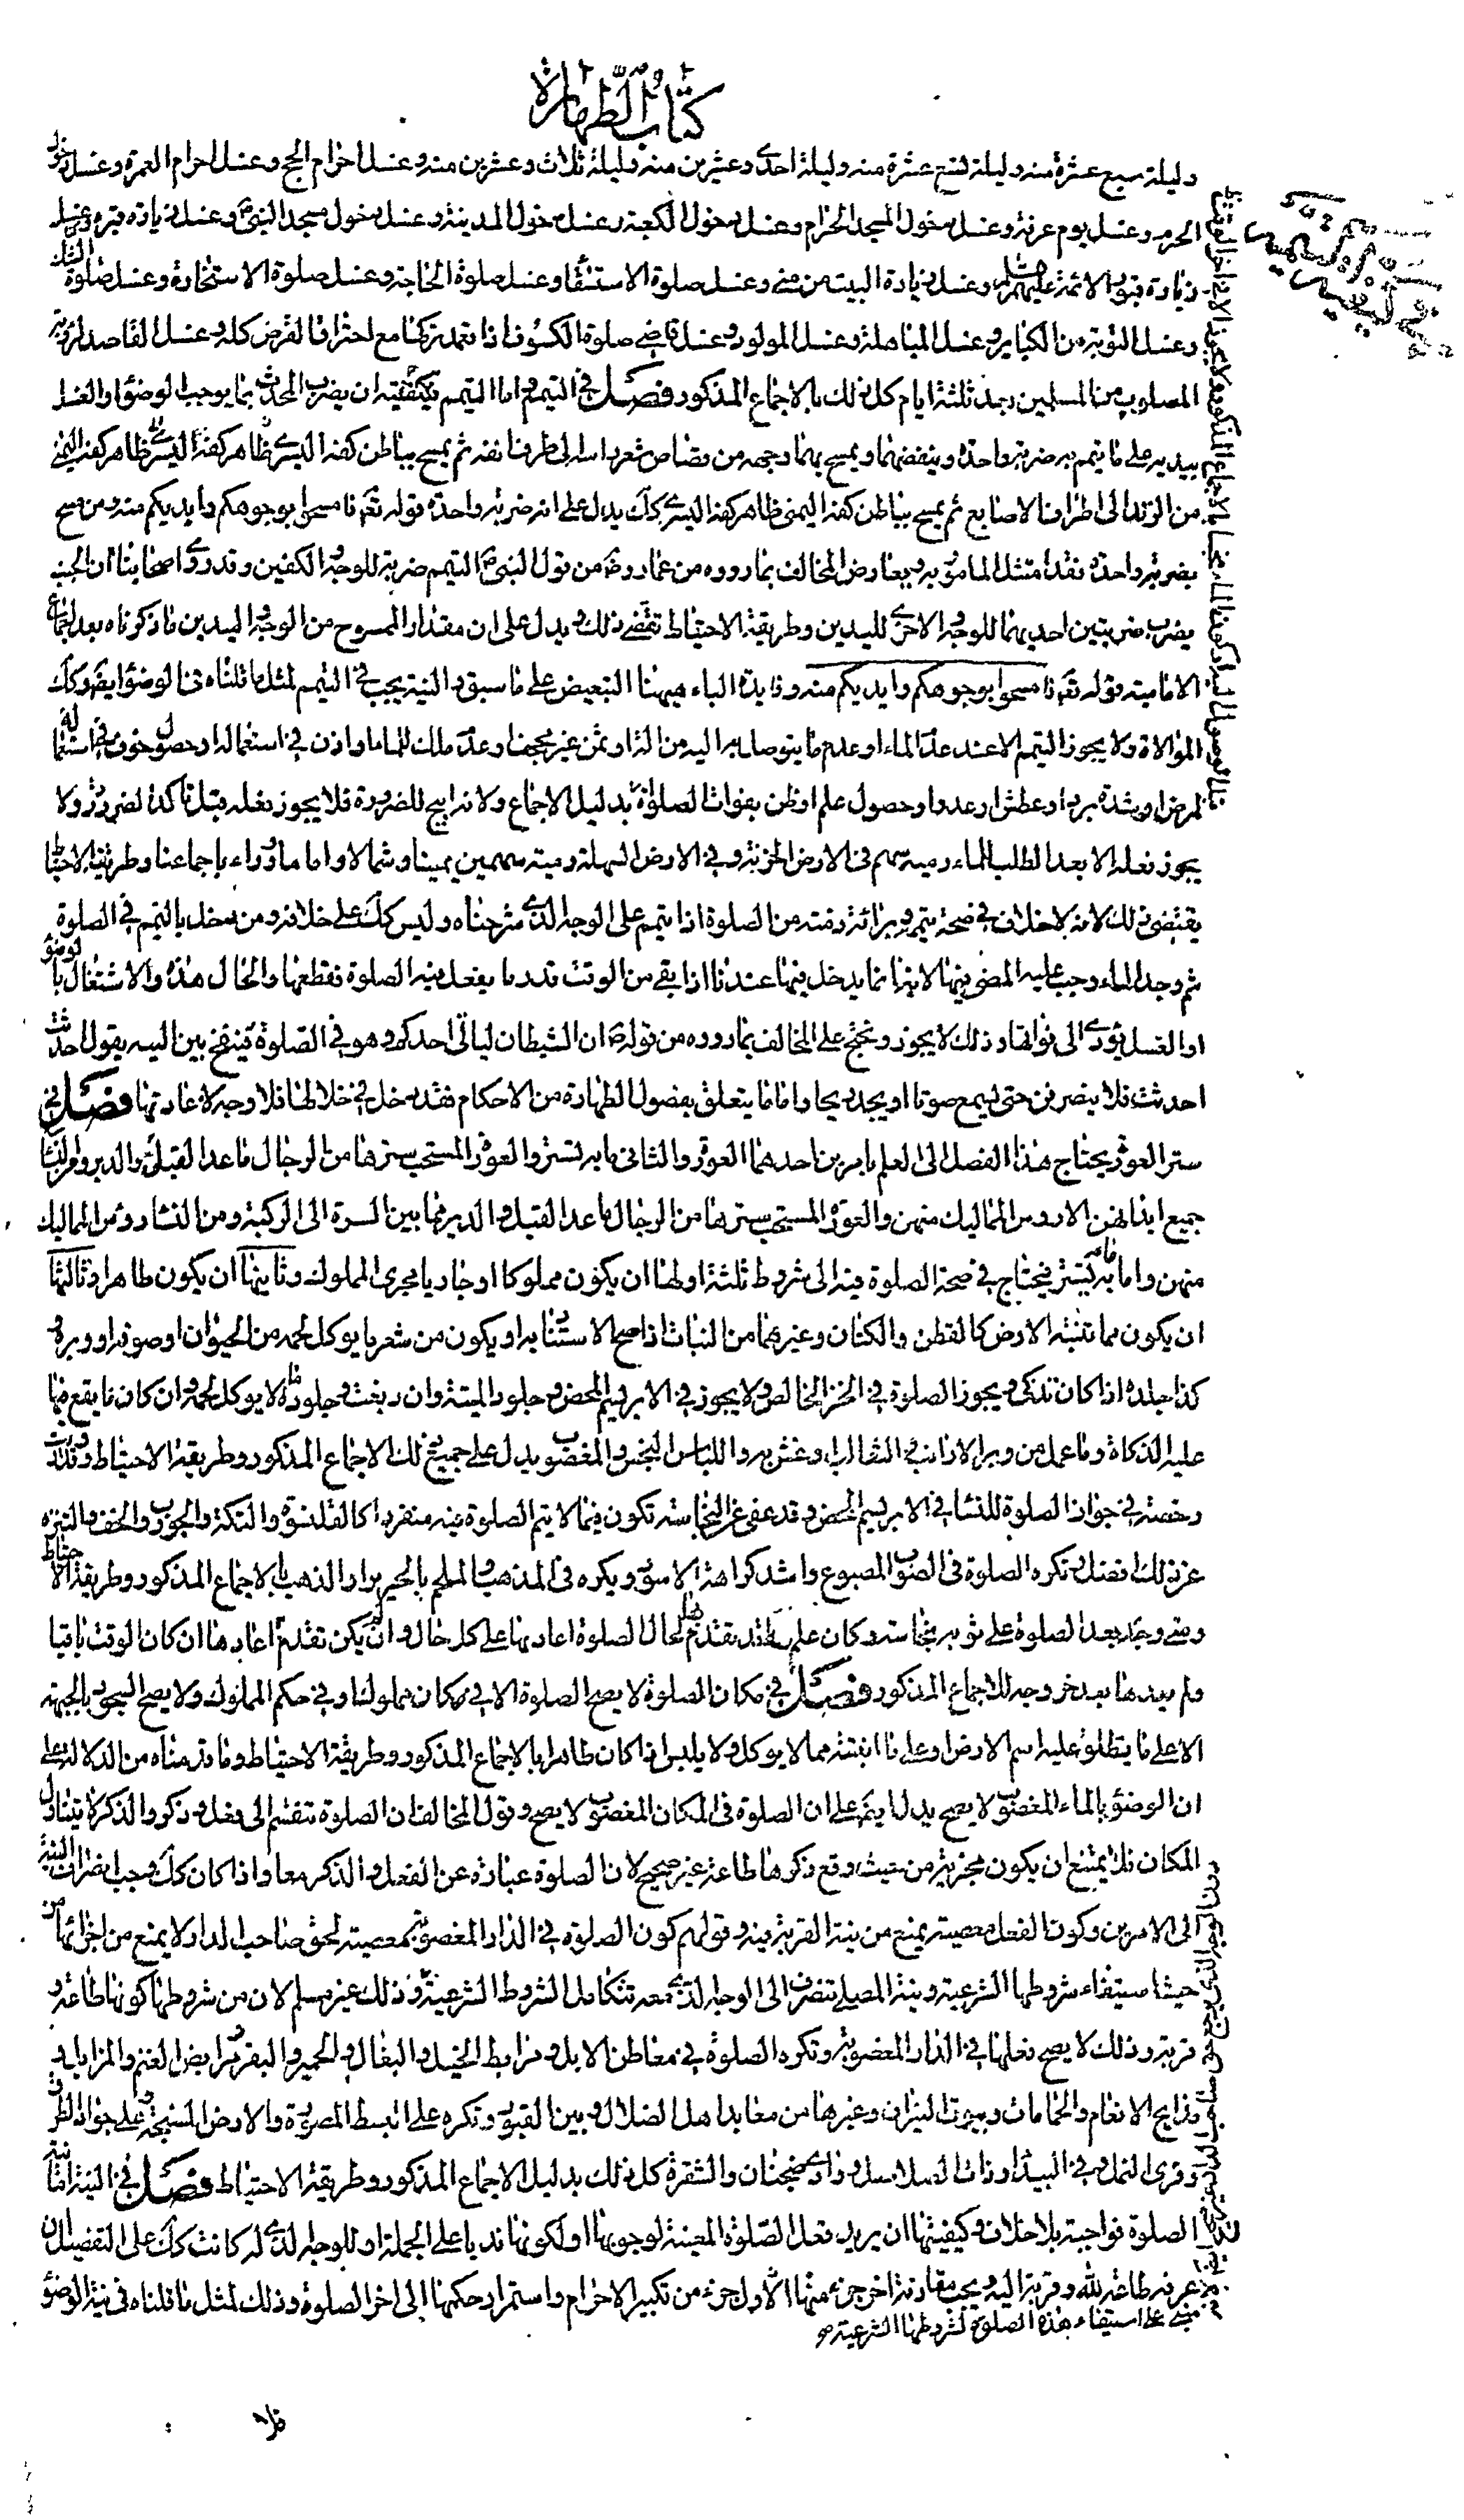 كتاب الطهارة
وليلة سبع عشرة منه وليلة تسع عشرة منه وليلة احدى وعشرين منه وليلة ثلاث وعشرين منه وغسل احرام الحج وغسل احرام العمرة وغسل دخول
الحرم وغسل يوم عرفة وغسل دخول المسجد الحرام وغسل دخول الكعبة وغسل دخول المدينة وغسل دخول مسجد النبي ص وغسل زيارة قبره وغسل
زيارة قبور الائمة عليهم السلام وغسل زيارة البيت من منى وغسل صلوة الاستسقاء وغسل صلوة الحاجة وغسل صلوة الاستخارة وغسل صلوة الشكر
وغسل التوبة من الكبائر وغسل المباهلة وغسل المولود وغسل قاضي صلوة الكسوف اذا تعمد تركها مع احتراق القرص كله وغسل القاصد لرؤية
المصلوب من المسلمين بعد ثلثة ايام كل ذلك بالاجماع المذكور فصل في التيمم واما التيمم فكيفيته ان يضرب المحدث بما يوجب الوضوء او الغسل
بيديه على ما يتيمم به ضربة واحدة وينفضهما ويمسح بهما وجهه من قصاص شعر راسه الى طرف انفه ثم يمسح بباطن كفه اليسرى ظاهر كفه اليمنى
من الزند الى اطراف الاصابع ثم يمسح بباطن كفه اليمنى ظاهر كفه اليسرى كك يدل على انه ضربة واحدة قوله تع فامسحوا بوجوهكم وايديكم منه ومن مسح
بضربة واحدة فقد امتثل المامور به ويعارض المخالف بما رووه من عمار رض من قول النبي ص التيمم ضربة للوجه والكفين وقد روى اصحابنا ان الجنب
يضرب ضربتين احديهما للوجه والاخرى لليدين وطريقة الاحتياط تقتضي ذلك ويدل على ان مقدار الممسوح من الوجه واليدين ما ذكرناه بعد اجماع
الامامية قوله تع فامسحوا بوجوهكم وايديكم منه وفايدة الباء هيهنا التبعيض على ما سبق والنية يجب في التيمم لمثل ما قلناه في الوضوء ايضا وكك
الموالاة ولا يجوز التيمم الا عند عدم الماء او عدم ما يتوصل به اليه من الة او ثمن غير مجحف او عدم ملك للماء او اذن في استعماله او حصول خوف في استعماله
لمرض او شدة برد او عطش او عدو او حصول علم او ظن بفوات الصلوة بدليل الاجماع ولانه ابيح للضرورة فلا يجوز فعله قبل تاكد الضرورة ولا
يجوز فعله الا بعد الطلب للماء رمية سهم في الارض الحزنة وفي الارض السهلة رمية سهمين يمينا وشمالا واماما ووراء باجماعنا وطريقة الاحتياط
يقتضي ذلك لانه لا خلاف في صحة تيممه وبرائة ذمته من الصلوة اذا تيمم على الوجه الذي شرحناه وليس كك على خلافه ومن دخل بالتيمم في الصلوة
ثم وجد الماء وجب عليه المضي فيها لانه انما يدخل فيها عندنا اذا بقي من الوقت قدر ما يفعل فيه الصلوة فقطعها والحال هذه والاشتغال بالوضوء
او الغسل يؤدي الى فواتها وذلك لا يجوز ونحتج على المخالف بما رووه من قوله ص ان الشيطان لياتي احدكم وهو في الصلوة فينفخ بين اليتيه يقول احدثت
احدثت فلا ينصرفن حتى يسمع صوتا او يجد ريحا واما ما يتعلق بفصول الطهارة من الاحكام فقد دخل في خلالها فلا وجه لاعادتها فصل في
ستر العورة يحتاج هذا الفصل الى العلم بامرين احدهما العورة والثاني ما به تستر والعورة المستحب سترها من الرجال ما عدا القبل والدبر ومن النساء
جميع ابدانهن الا رؤس المماليك منهن والعورة المستحب سترها من الرجال ما عدا القبل والدبر مما بين السرة الى الركبة ومن النساء رؤس المماليك
منهن واما ما به يستتر فيحتاج في صحة الصلوة فيه الى شروط ثلثة اولها ان يكون مملوكا او جاريا مجرى المملوك وثانيها ان يكون طاهرا وثالثها
ان يكون مما تنبته الارض كالقطن والكتان وغيرهما من النبات اذا صح الاستتار به او يكون من شعر ما يؤكل لحمه من الحيوان او صوفه او وبره و
كذا جلده اذا كان تذكى ويجوز الصلوة في الخز الخالص ولا يجوز في الابريسم المحض وجلود الميتة وان دبغت وجلود ما لا يوكل لحمه وان كان ما يقع فيها
عليه الذكاة وما عمل من وبر الارانب والثعالب او غش به واللباس النجس والمغصوب يدل على جميع ذلك الاجماع المذكور وطريقة الاحتياط وقد وردت
رخصة في جواز الصلوة للنساء في الابريسم المحض وقد عفي عن النجاسة تكون فيما لا يتم الصلوة فيه منفردا كالقلنسوة والتكة والجورب والخف والتنزه
عن ذلك افضل وتكره الصلوة في الثوب المصبوغ واشد كراهة الاسود ويكره في المذهب والملحم بالحرير او الذهب بالاجماع المذكور وطريقة الاحتياط
ومتى وجد بعد الصلوة على ثوبه نجاسة وكان علمه بها قد تقدم لحال الصلوة اعادها على كل حال وان لم يكن تقدم اعادها ان كان الوقت باقيا
ولم يعدها بعد خروجه للاجماع المذكور فصل في مكان الصلوة لا يصح الصلوة الا في مكان مملوك او في حكم المملوك ولا يصح السجود بالجبهة
الا على ما يطلق عليه اسم الارض او على ما انبتته مما لا يوكل ولا يلبس اذا كان طاهرا بالاجماع المذكور وطريقة الاحتياط وما قدمناه من الدلالة على
ان الوضوء بالماء المغصوب لا يصح يدل ايضا على ان الصلوة في المكان المغصوب لا يصح وقول المخالف ان الصلوة تنقسم الى فعل وذكر والذكر لا يتناول
المكان فلا يمتنع ان يكون مجزية من حيث وقع ذكرها طاعة غير صحيح لان الصلوة عبارة عن الفعل والذكر معا واذا كان كك وجب انصراف النية
الى الامرين وكون الفعل معصية يمنع من نية القربة فيه وقولهم كون الصلوة في الدار المغصوبة معصية لحق صاحب الدار لا يمنع من اجزائها من
حيث استيفاء شروطها الشرعية ونية المصلي تنصرف الى الوجه الذي معه تتكامل الشروط الشرعية وذلك غير مسلم لان من شروطها كونها طاعة و
قربة وذلك لا يصح فعلها في الدار المغصوبة وتكره الصلوة في معاطن الابل ومرابط الخيل والبغال والحمير والبقر ومرابض الغنم والمزابل و
مذابح الانعام والحمامات وبيوت النيران وغيرها من معابد اهل الضلال وبين القبور وتكره على البسط المصورة والارض السبخة وعلى جواد الطرق
وقرى النمل وفي البيداء وذات الصلاصل ووادي ضجنان والشقرة كل ذلك بدليل الاجماع المذكور وطريقة الاحتياط فصل في النية اما نية
الصلوة فواجبة بلا خلاف وكيفيتها ان يريد فعل الصلوة المعينة لوجوبها او لكونها ندبا على الجملة او للوجه الذي له كانت كك على التفصيل ان
عرفه طاعة لله وقربة اليه ويجب مقارنة اخر جزء منها لاول جزء من تكبير الاحرام واستمرار حكمها الى اخر الصلوة وذلك لمثل ما قلناه في نية الوضوء
مبني على استيفاء هذه الصلوة لشروطها الشرعية صح
فلا